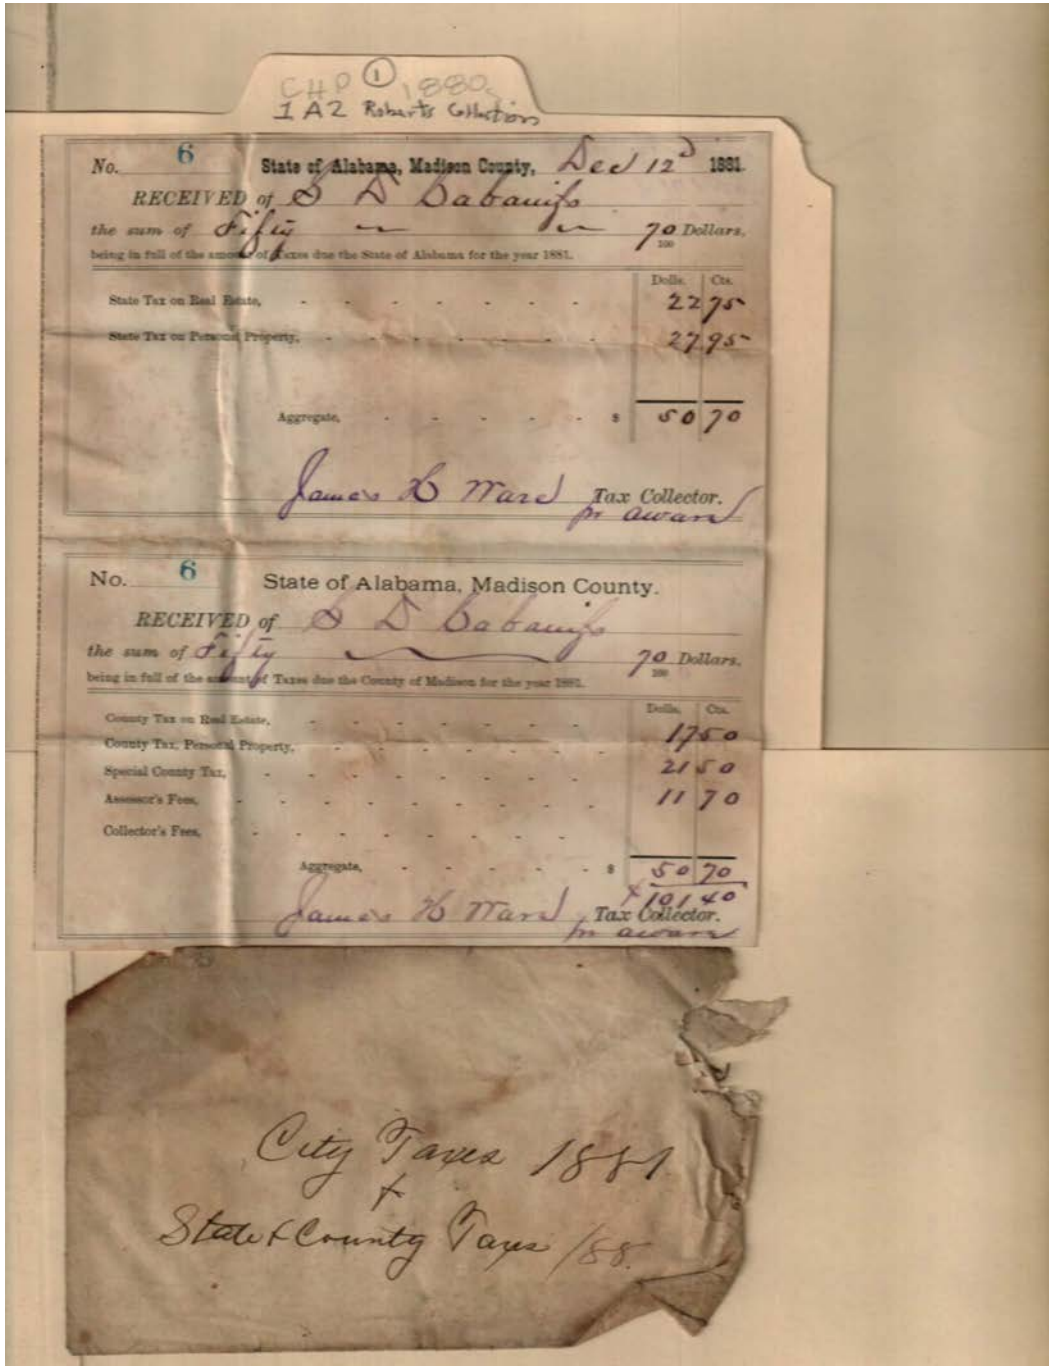 CHP ① 1880s
1A2 Roberts Collection
No. 6 State of Alabama, Madison County, Dec 12d 1881.
RECEIVED of S D Cabaniss
the sum of Fifty 70/100 Dollars,
being in full of the amount of Taxes due the State of Alabama for the year 1881.
Dolls. Cts.
State Tax on Real Estate, 22 75
State Tax on Personal Property, 27 95
Aggregate, $ 50 70
James H Ward Tax Collector.
pr award
No. 6 State of Alabama, Madison County.
RECEIVED of S D Cabaniss
the sum of Fifty 70/100 Dollars,
being in full of the amount of Taxes due the County of Madison for the year 1881.
Dolls. Cts.
County Tax on Real Estate, 17 50
County Tax, Personal Property, 21 50
Special County Tax, 11 70
Assessor's Fees,
Collector's Fees,
Aggregate, $ 50 70
101 40
James H Ward Tax Collector.
pr award
City Taxes 1881
+
State & County Taxes /88